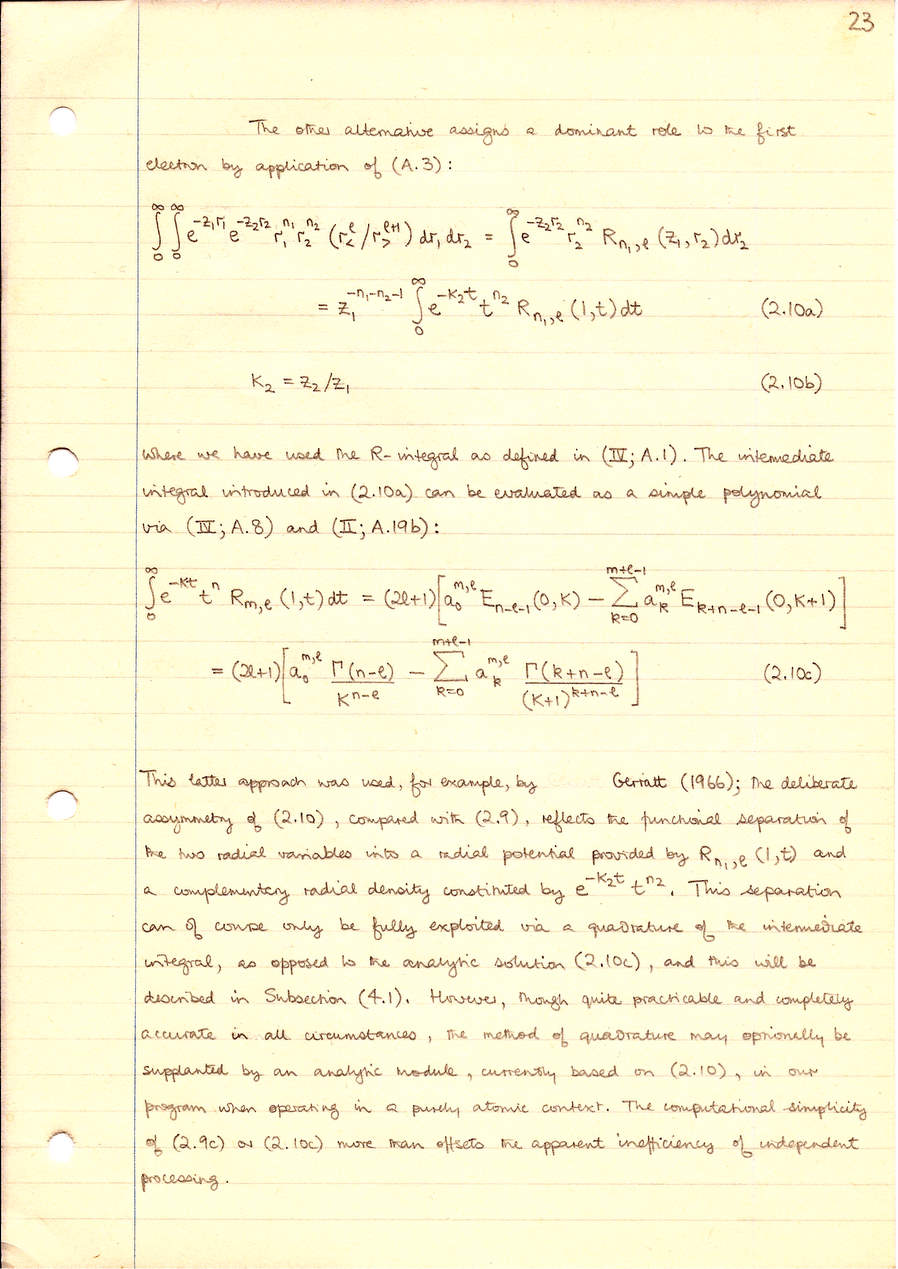 23
The other alternative assigns a dominant role to the first
electron by application of (A.3) :
∫₀^∞ ∫₀^∞ e^{-z₁r₁} e^{-z₂r₂} r₁^{n₁} r₂^{n₂} (r_<^ℓ / r_>^{ℓ+1}) dr₁ dr₂ = ∫₀^∞ e^{-z₂r₂} r₂^{n₂} R_{n₁,ℓ} (z₁, r₂) dr₂
= z₁^{-n₁-n₂-1} ∫₀^∞ e^{-K₂t} t^{n₂} R_{n₁,ℓ} (1,t) dt (2.10a)
K₂ = z₂/z₁ (2.10b)
where we have used the R-integral as defined in (IV; A.1). The intermediate
integral introduced in (2.10a) can be evaluated as a simple polynomial
via (IV; A.8) and (II; A.19b) :
∫₀^∞ e^{-Kt} t^n R_{m,ℓ} (1,t) dt = (2ℓ+1)[a₀^{m,ℓ} E_{n-ℓ-1}(0,K) − Σ_{k=0}^{m+ℓ-1} a_k^{m,ℓ} E_{k+n-ℓ-1}(0,K+1)]
= (2ℓ+1)[a₀^{m,ℓ} Γ(n-ℓ)/K^{n-ℓ} − Σ_{k=0}^{m+ℓ-1} a_k^{m,ℓ} Γ(k+n-ℓ)/(K+1)^{k+n-ℓ}] (2.10c)
This latter approach was used, for example, by Gerratt (1966); the deliberate
assymmetry of (2.10), compared with (2.9), reflects the functional separation of
the two radial variables into a radial potential provided by R_{n₁,ℓ} (1,t) and
a complementary radial density constituted by e^{-K₂t} t^{n₂}. This separation
can of course only be fully exploited via a quadrature of the intermediate
integral, as opposed to the analytic solution (2.10c), and this will be
described in Subsection (4.1). However, though quite practicable and completely
accurate in all circumstances, the method of quadrature may optionally be
supplanted by an analytic module, currently based on (2.10), in our
program when operating in a purely atomic context. The computational simplicity
of (2.9c) or (2.10c) more than offsets the apparent inefficiency of independent
processing.